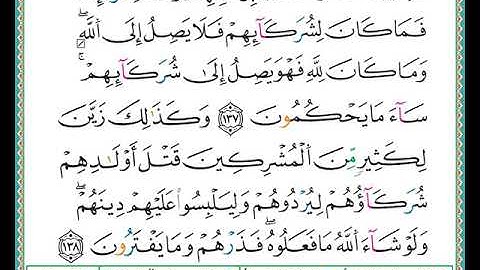 فَمَا كَانَ لِشُرَكَآئِهِمْ فَلَا يَصِلُ إِلَى ٱللَّهِۖ
وَمَا كَانَ لِلَّهِ فَهْوَ يَصِلُ إِلَىٰ شُرَكَآئِهِمْۚ
سَآءَ مَا يَحْكُمُونَ ١٣٧ وَكَذَٰلِكَ زَيَّنَ
لِكَثِيرٍ مِّنَ ٱلْمُشْرِكِينَ قَتْلَ أَوْلَٰدِهِمْ
شُرَكَآؤُهُمْ لِيُرْدُوهُمْ وَلِيَلْبِسُواْ عَلَيْهِمْ دِينَهُمْۖ
وَلَوْ شَآءَ ٱللَّهُ مَا فَعَلُوهُۖ فَذَرْهُمْ وَمَا يَفْتَرُونَ ١٣٨